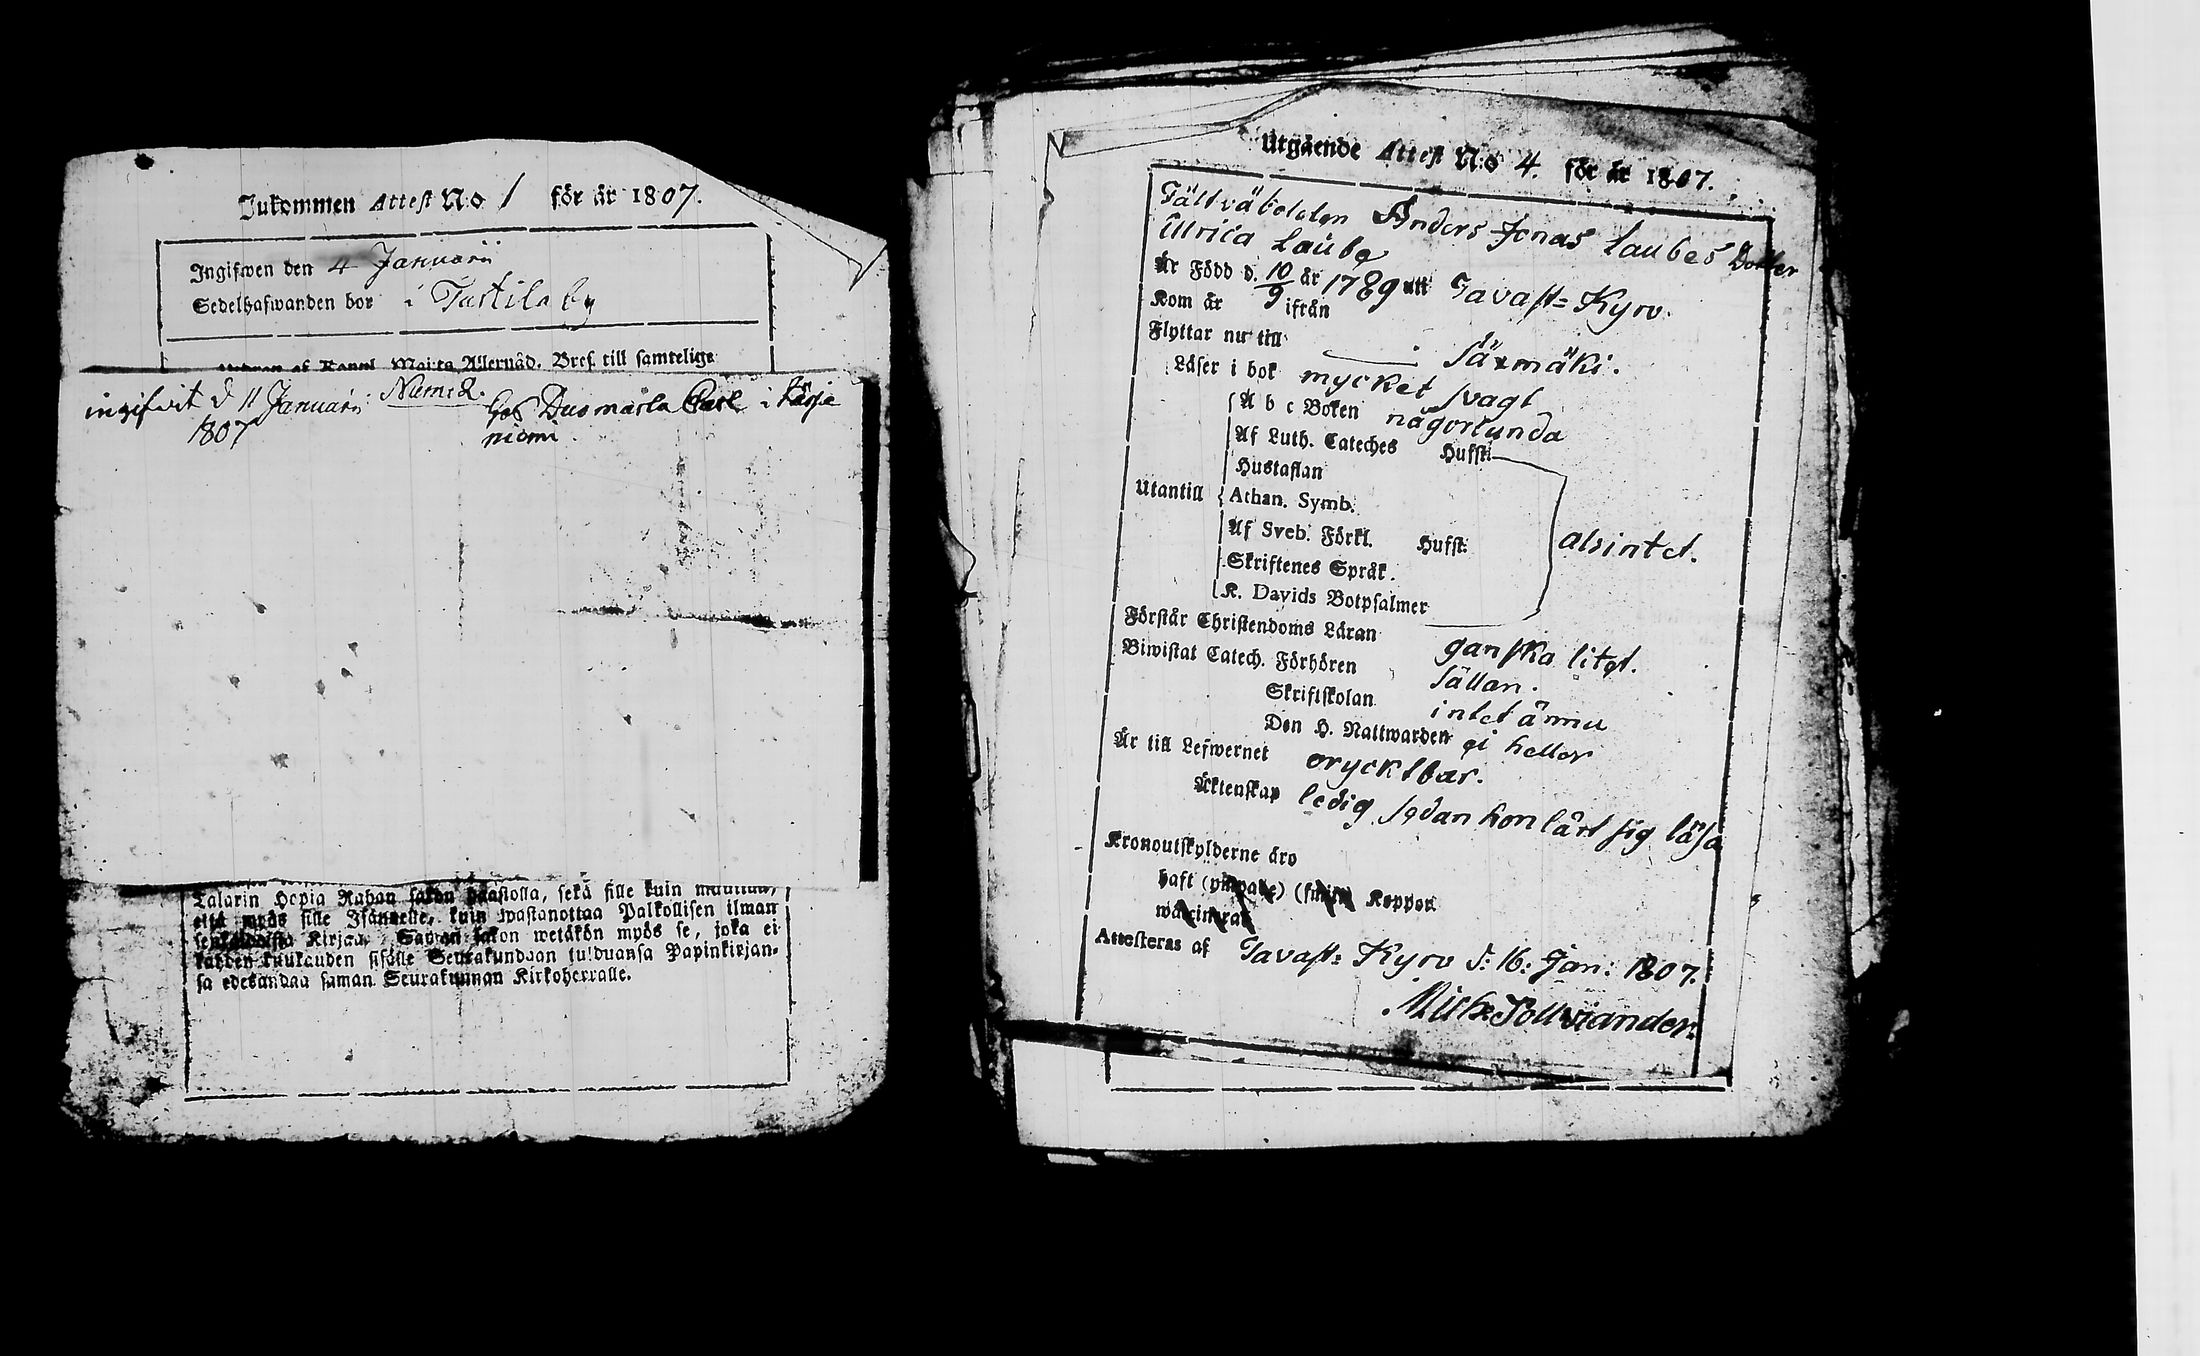 Inkommen Attest N:o 1 för år 1807.
Ingifwen den 4 Januarii
Sedelhafwanden bor i Turtila by
af Kongl. Maj:ts Allernåd. Bref till samtelige
ingifvit d 11 Januarii Num: 2. hos Dusmäsla Carl i Kärje
1807 niemi
Talarin Hopia Rahan sakon päästolla, sekä sille kuin muuttaa,
että myös sille Isännelle, kuin wastanottaa Palkollisen ilman
Kirjaa. Saman sakon wetäkön myös se, joka ei
kahden kuukauden sisälle Seurakundaan tulduansa Papinkirjan-
sa edesandaa saman Seurakunnan Kirkoherralle.
Utgående Attest N:o 4. för år 1807.
Fältväbelden Anders Jonas Laubes Dotter
Ulrica Laube
År Född d. 10/9 år 1789 utt Tavast=Kyro.
Kom år ifrån
Flyttar nu till Säxmäki.
Läser i bok mycket svagt
A b c Boken någorlunda
Af Luth. Cateches Hufst:
Hustaflan
Utantill Athan. Symb.
Af Sveb. Förkl. Hufst: alsintet.
Skriftenes Språk.
K. Davids Botpsalmer
Förstår Christendoms Läran ganska litet.
Biwistat Catech. Förhören sällan.
Skriftskolan intet ännu
Den H. Nattwarden ei heller
Är till Lefwernet orycktbar.
Äktenskap ledig sedan hon lärt sig läsa
Kronoutskylderne äro
haft Koppor
Attesteras af Tavast=Kyro d: 16: Jan: 1807.